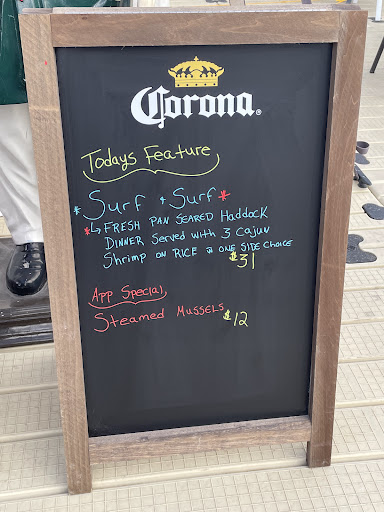 Corona®
Todays Feature
* Surf & Surf *
*↳ FRESH PAN SEARED Haddock
DINNER Served with 3 Cajun
Shrimp on RICE & ONE SIDE CHOICE
$31
App Special,
Steamed Mussels
$12